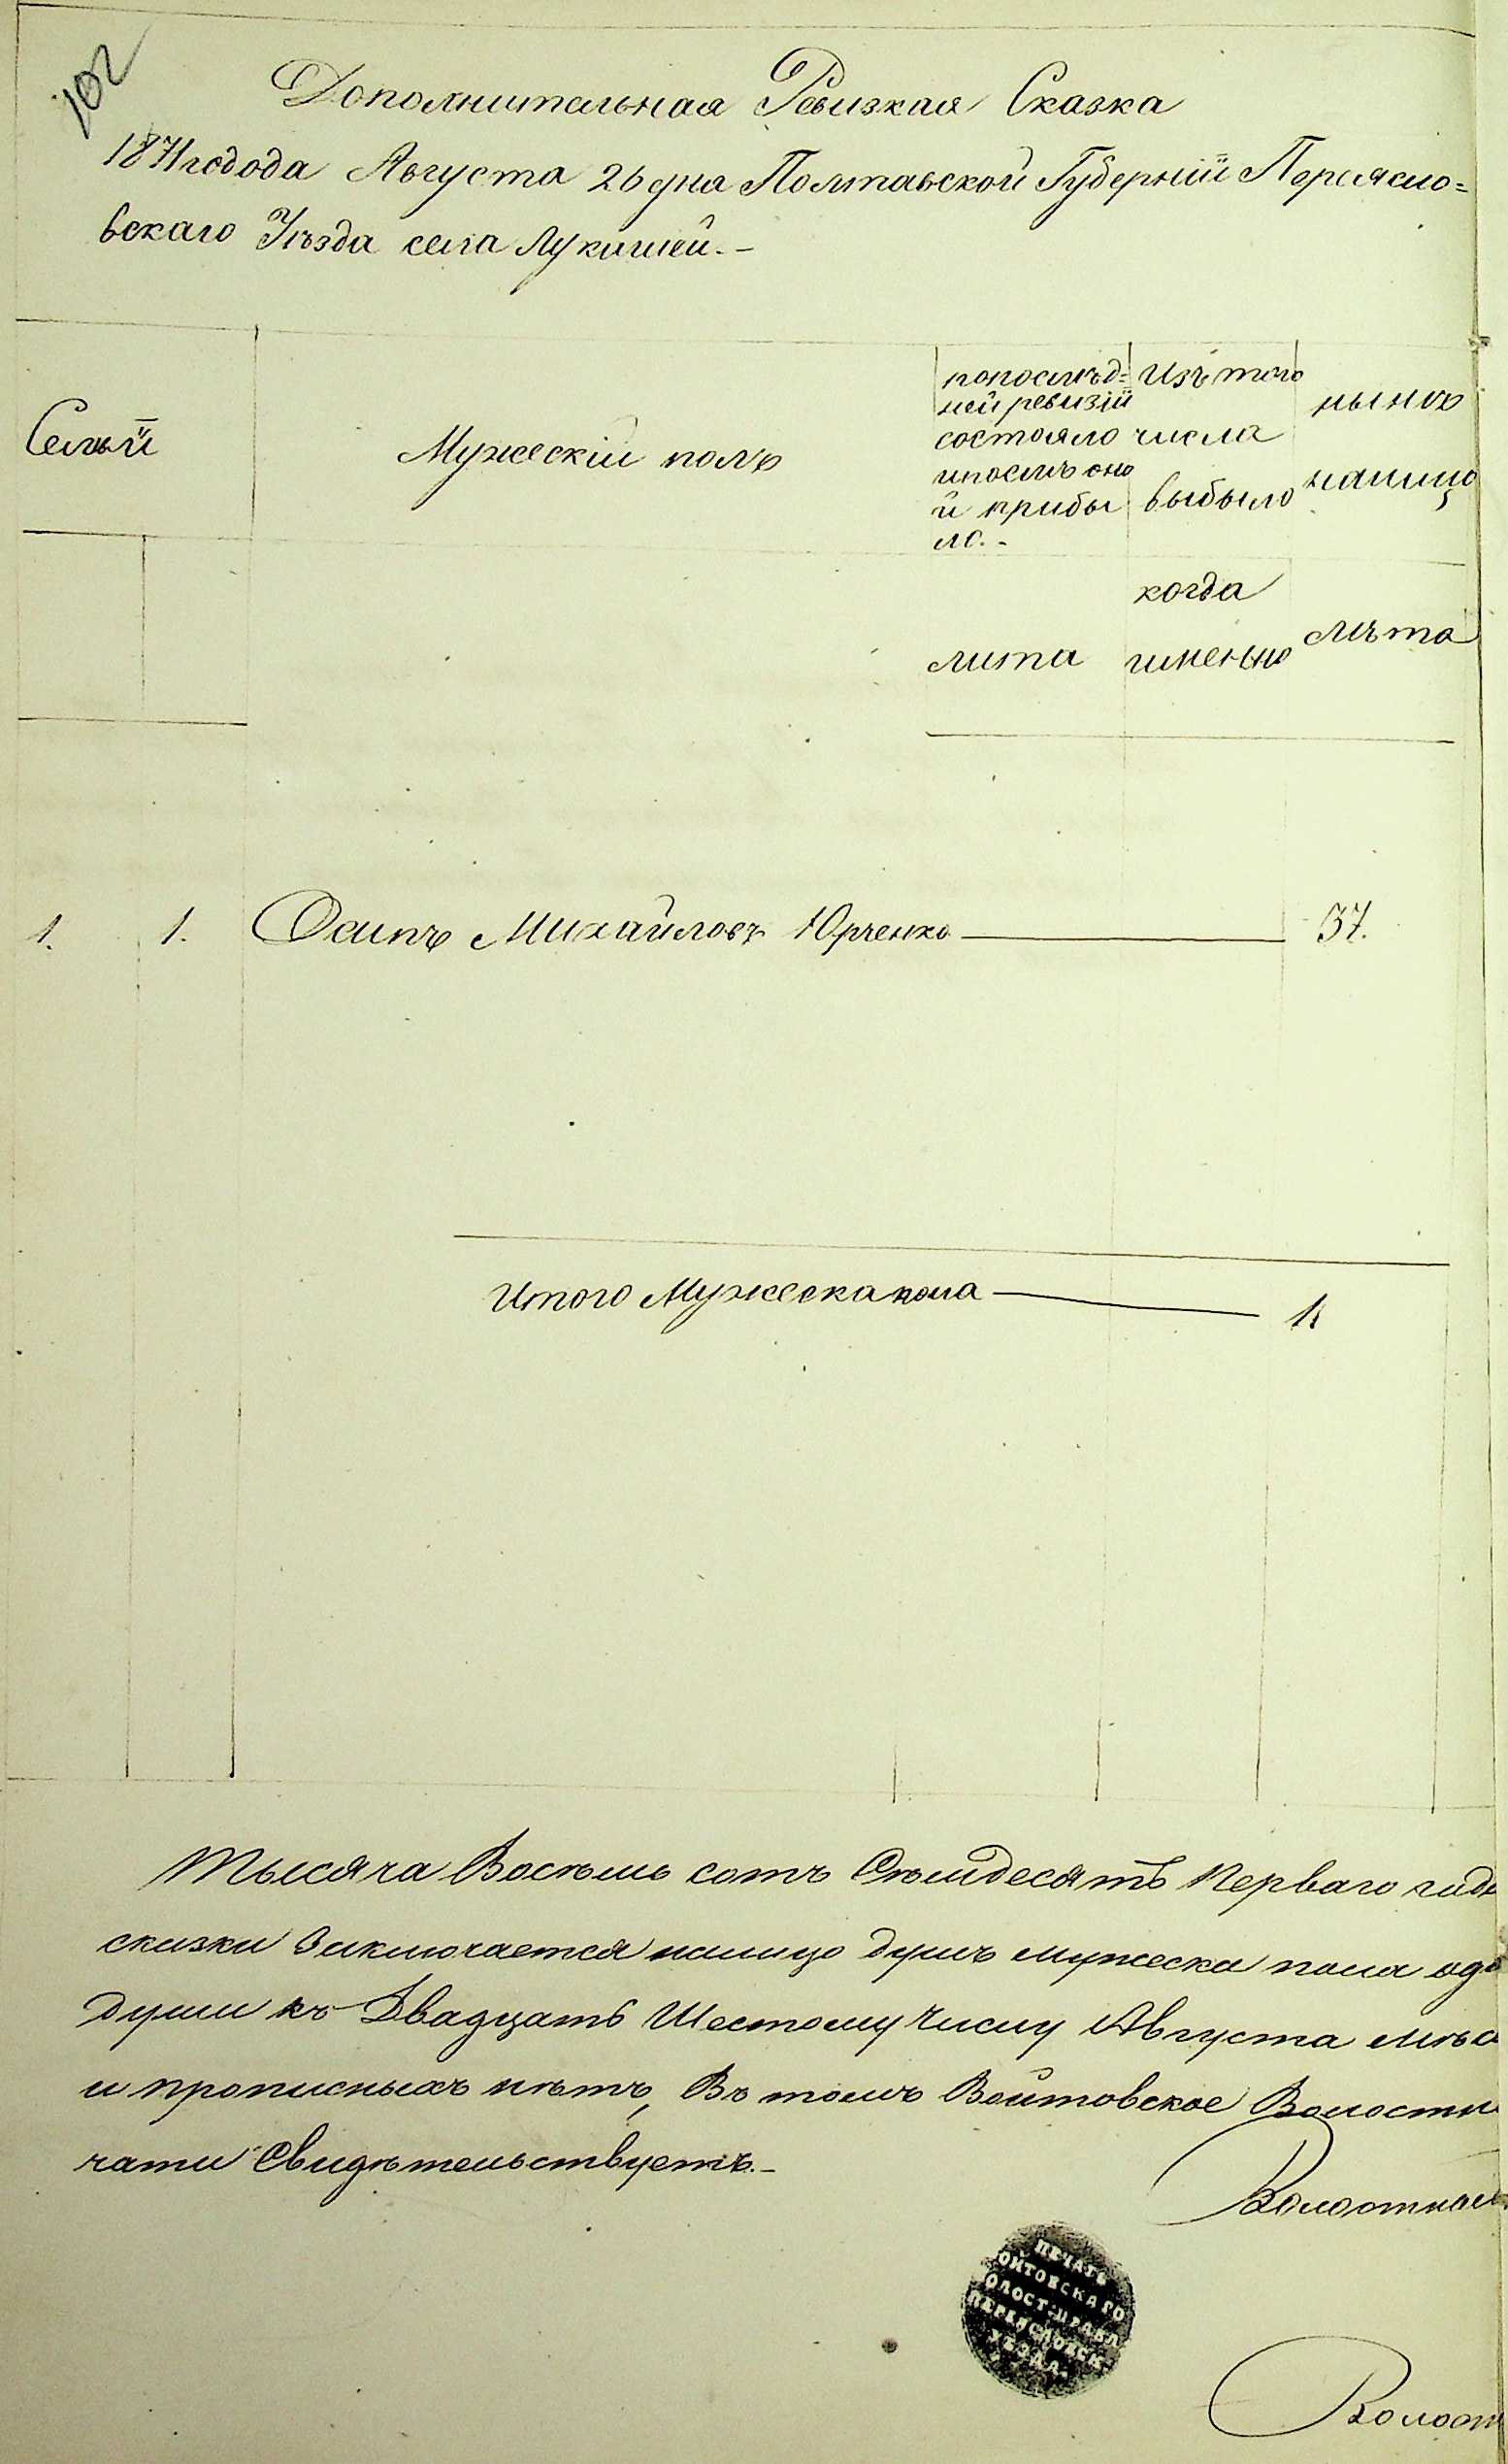 102
Дополнительная Ревизкая Сказка
1871 годода Августа 26 дня Полтавской Губерніи Переясло=
вскаго Уѣзда села Лукашей. –
Семьи
Мужескій полъ
попослѣд=
ней ревизіи
состояло
ипослѣ оно
й прибы
ло. –
Изъ того
числа
выбыло
нынѣ
налицо
лита
когда
именно
лѣта
1. 1. Осипъ Михайловъ Юрченко 37.
Итого Мужеска пола 1
Тысяча Восѣмь сотъ Сѣмдесятъ Перваго года
сказки Заключается налицо душъ мужеска пола одо
души къ Двадцать Шестому Числу Августа мѣс
и прописныхъ нѣтъ, Въ томъ Войтовское Волостн
чати Свидѣтельствуетъ. –
Волостной
ПЕЧАТЬ
ОЙТОВСКАГО
ОЛОСТ: ПРАВЛ
ПЕРЕЯСЛОВСК
УѢЗДА.
Волост